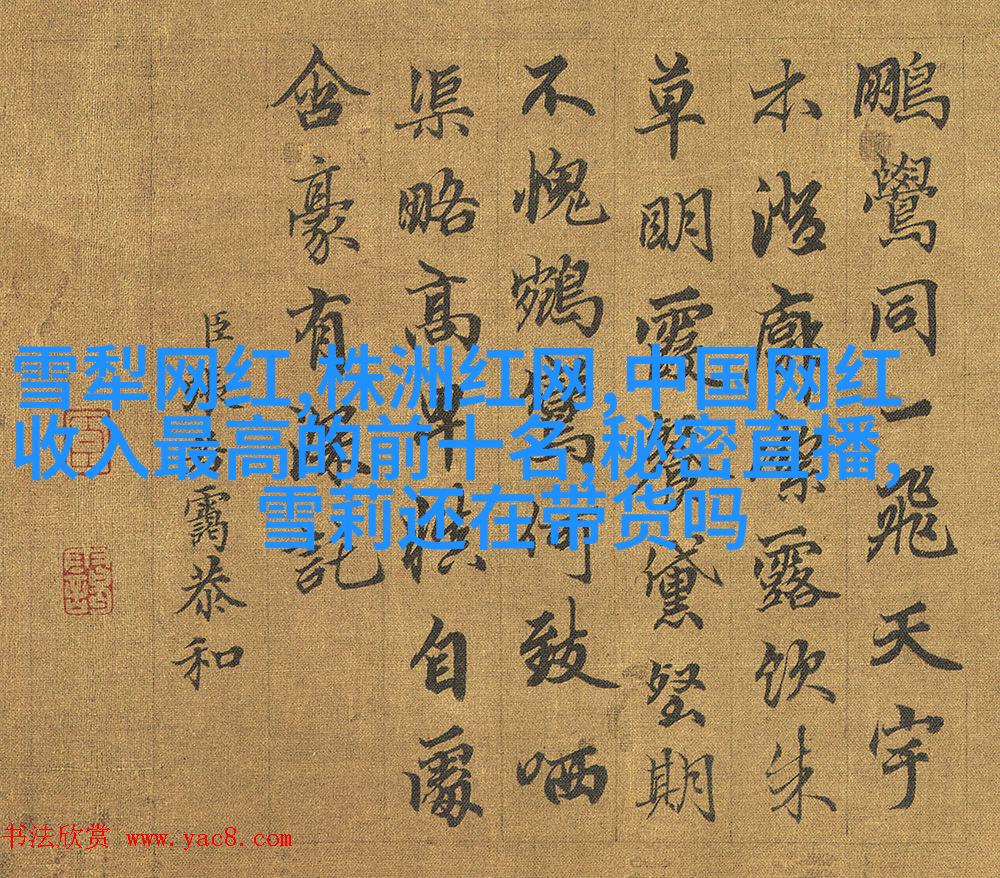 雪犁网红,株洲红网,中国网红
收入最高的前十名,秘密直播,
雪莉还在带货吗
鵬鷽同一飛天宇
木澄廓露飲朱
草明霞黛期
不愧鵷鸞何致哂
渠略高卑自
含豪有深託
臣張若靄恭和
书法欣赏 www.yac8.com